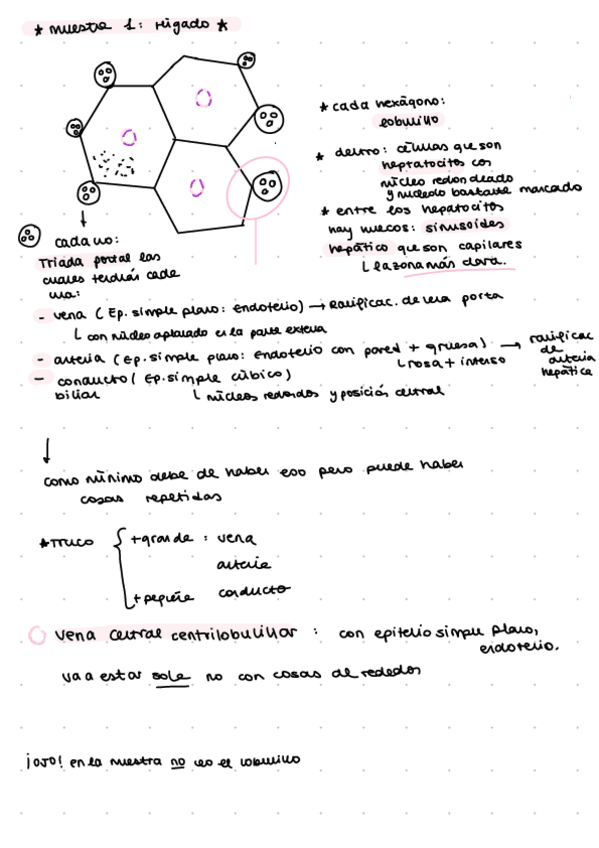 * muestra 1: hígado *
* cada hexágono:
lobulillo
* dentro: células que son
heptatocitos con
núcleo redondeado
y nucleolo bastante marcado
* entre los hepatocitos
hay huecos: sinusoides
hepático que son capilares
la zona más clara.
cada uno:
Triada portal las
cuales tendrán cada
una:
- vena (Ep. simple plano: endotelio) → Ramificac. de vena porta
con núcleo aplanado en la parte externa
- arteria (Ep. simple plano: endotelio con pared + gruesa) → ramificac
de
arteria
hepática
rosa + intenso
- conducto (Ep. simple cúbico)
biliar
núcleos redondos y posición central
↓
como mínimo debe de haber eso pero puede haber
cosas repetidas
* truco
+ grande : vena
arteria
+ pequeña conducto
vena central centrilobulillar : con epitelio simple plano,
endotelio.
va a estar sola no con cosas de rededor
¡ojo! en la muestra no veo el lobulillo